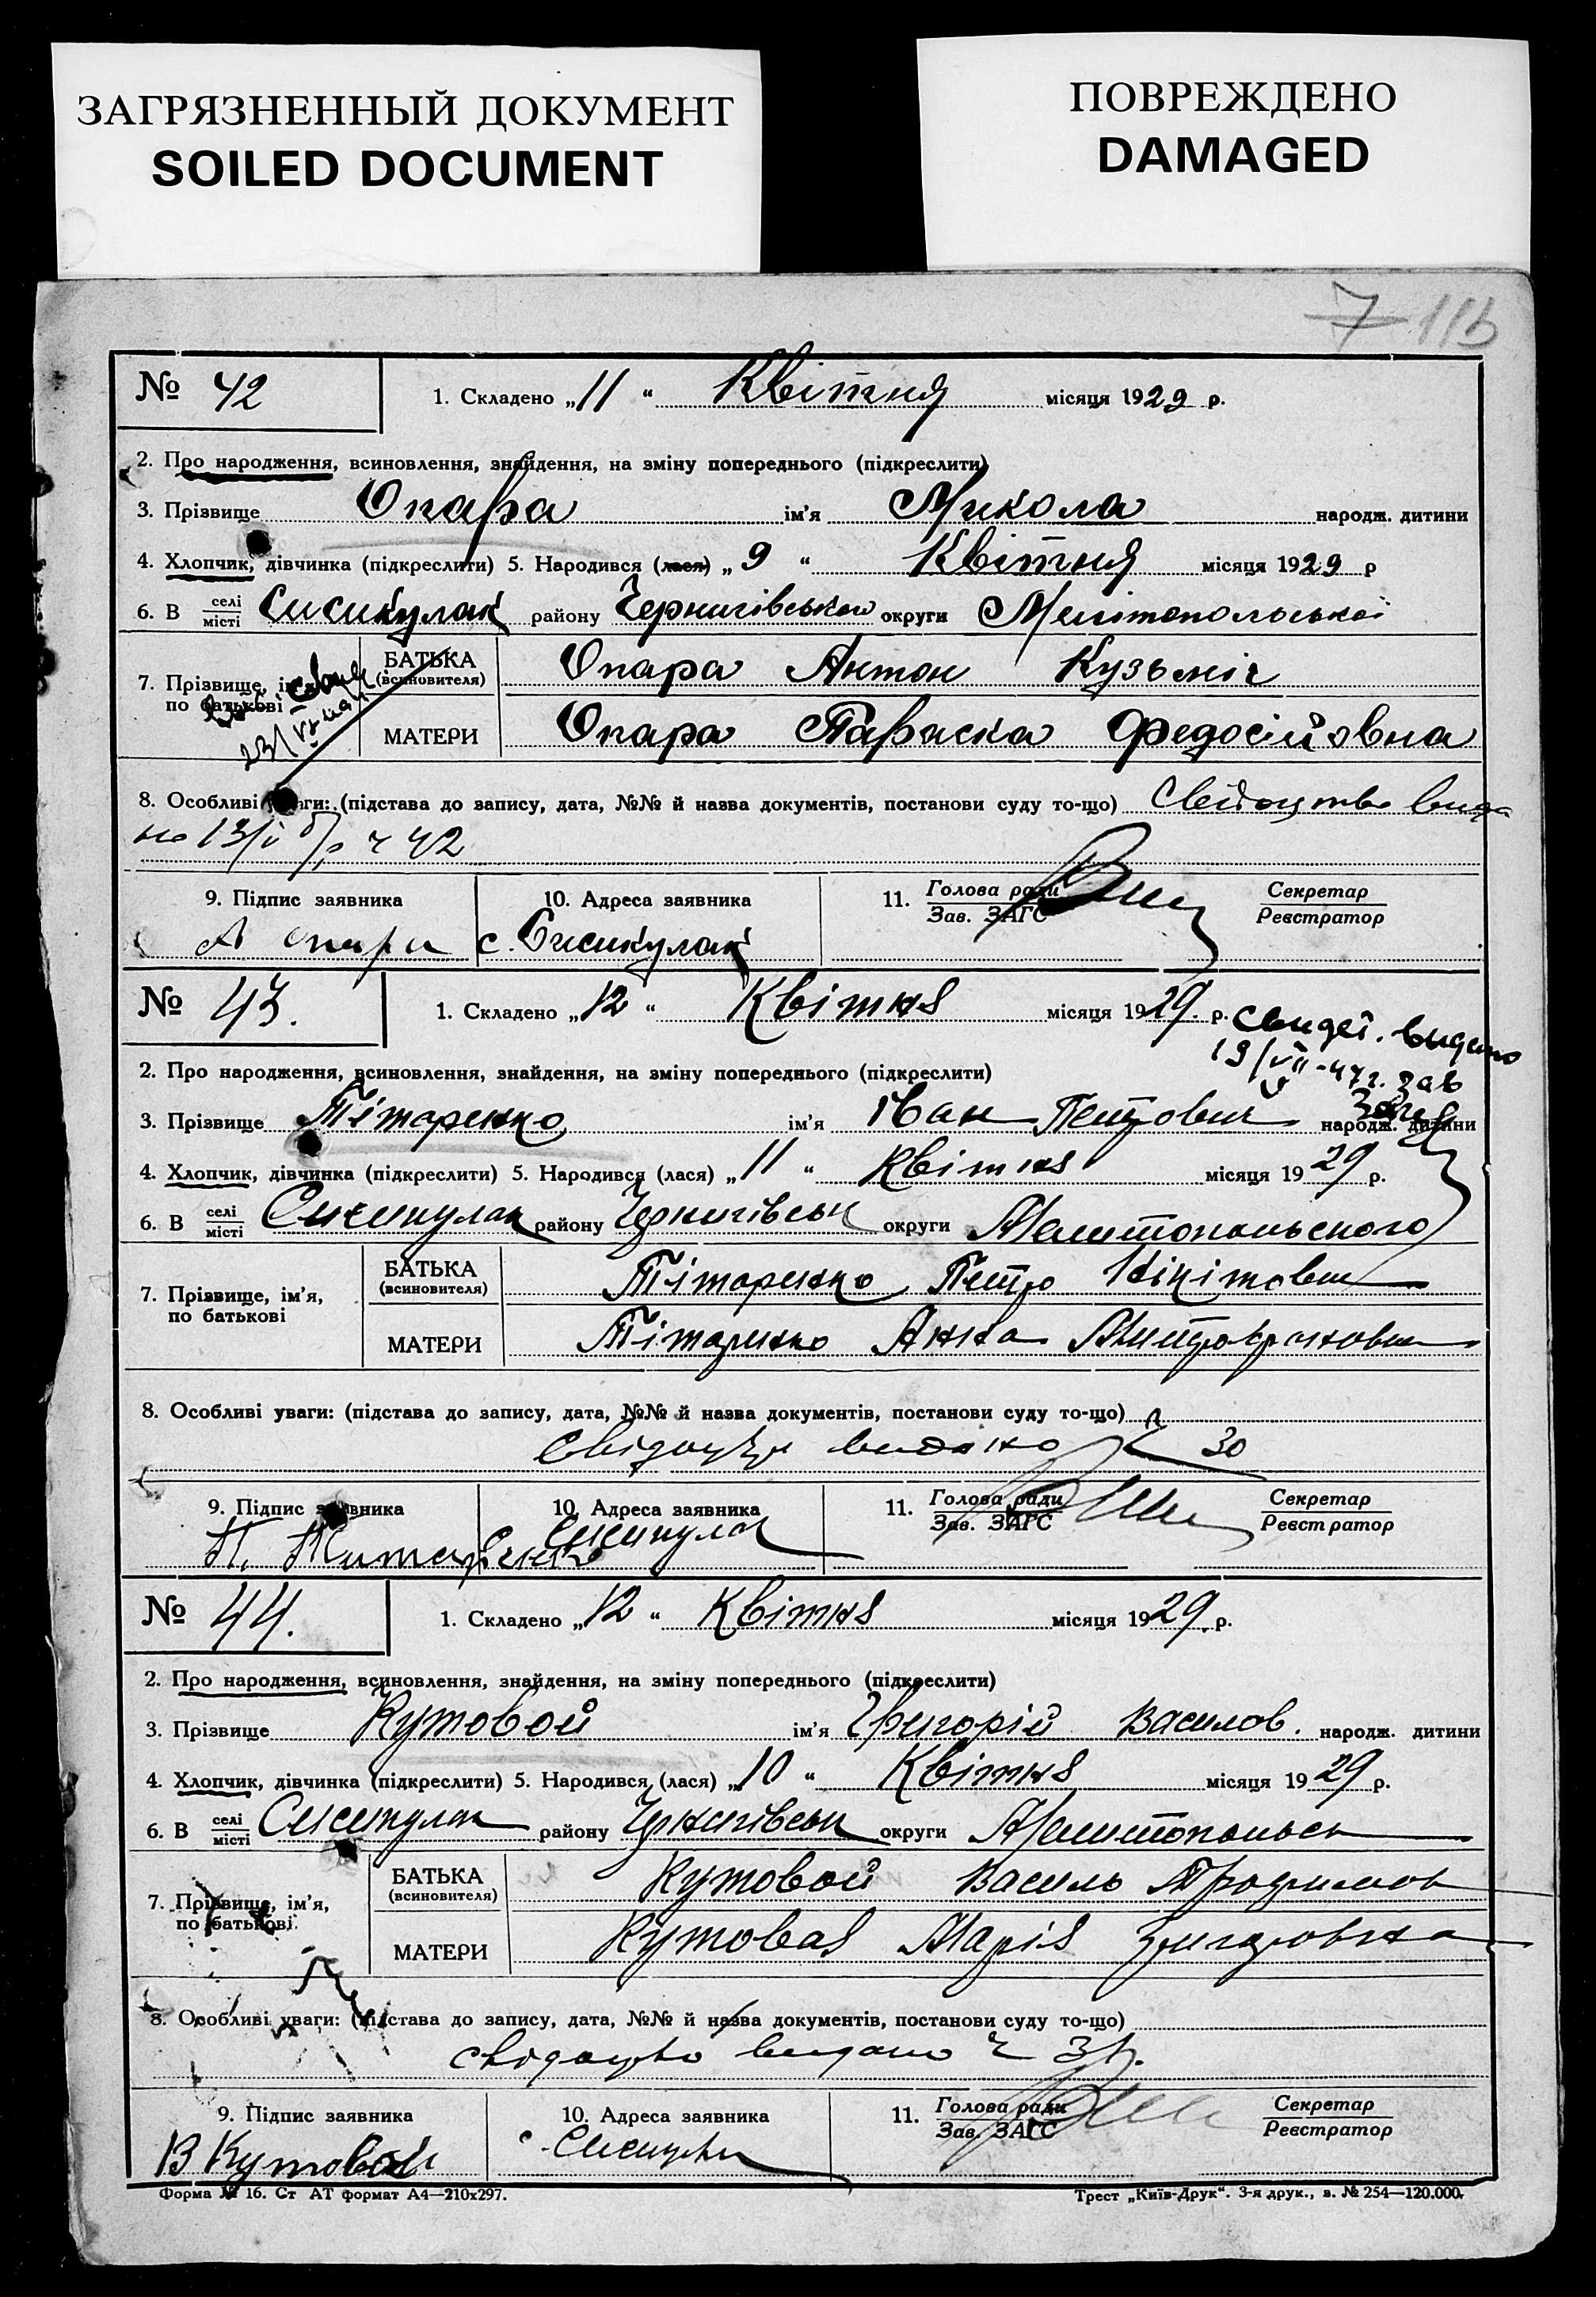 ЗАГРЯЗНЕННЫЙ ДОКУМЕНТ
SOILED DOCUMENT
ПОВРЕЖДЕНО
DAMAGED
7 113
№ 42
1. Складено „11“ Квітня місяця 1929 р.
2. Про народження, всиновлення, знайдення, на зміну попереднього (підкреслити)
3. Прізвище Опара ім'я Микола народж. дитини
4. Хлопчик, дівчинка (підкреслити) 5. Народився (лася) „9“ Квітня місяця 1929 р
6. В селі місті Сисикулак району Чернигівського округи Мелітопольської
7. Прізвище, ім'я по батькові
БАТЬКА (всиновителя) Опара Антон Кузьміч
МАТЕРИ Опара Параска Федосійовна
8. Особливі уваги: (підстава до запису, дата, №№ й назва документів, постанови суду то-що) Свідоцтво вида
но 13/V ч 42
9. Підпис заявника
10. Адреса заявника
11. Голова ради Зав. ЗАГС
Секретар Реєстратор
А Опара с. Сисикулак
№ 43.
1. Складено „12“ Квітня місяця 1929. р.
Свидет. видано
19/VII-47г. Зав
Загс
2. Про народження, всиновлення, знайдення, на зміну попереднього (підкреслити)
3. Прізвище Тітаренко ім'я Іван Петрович народж. дитини
4. Хлопчик, дівчинка (підкреслити) 5. Народився (лася) „11“ Квітня місяця 1929 р.
6. В селі місті Сисикулак району Чернигівськ округи Мелитопольского
7. Прізвище, ім'я, по батькові
БАТЬКА (всиновителя) Тітаренко Петро Нікітович
МАТЕРИ Тітаренко Анна
8. Особливі уваги: (підстава до запису, дата, №№ й назва документів, постанови суду то-що)
видано ч 30
9. Підпис заявника
10. Адреса заявника
11. Голова ради Зав. ЗАГС
Секретар Реєстратор
П. Титаренко Сисикулак
№ 44.
1. Складено „12“ Квітня місяця 1929 р.
2. Про народження, всиновлення, знайдення, на зміну попереднього (підкреслити)
3. Прізвище Кутовой ім'я Григорій Василов. народж. дитини
4. Хлопчик, дівчинка (підкреслити) 5. Народився (лася) „10“ Квітня місяця 1929 р.
6. В селі місті Сисикулак району Чернигівськ округи Мелитопольск
7. Прізвище, ім'я, по батькові
БАТЬКА (всиновителя) Кутовой Василь Трофимов
МАТЕРИ Кутовая Марія Григоровна
8. Особливі уваги: (підстава до запису, дата, №№ й назва документів, постанови суду то-що)
свідоцтво видано ч 31.
9. Підпис заявника
10. Адреса заявника
11. Голова ради Зав. ЗАГС
Секретар Реєстратор
В Кутовой с.
Форма № 16. Ст АТ формат А4—210х297.
Трест „Київ-Друк“. 3-я друк., в. № 254—120.000.